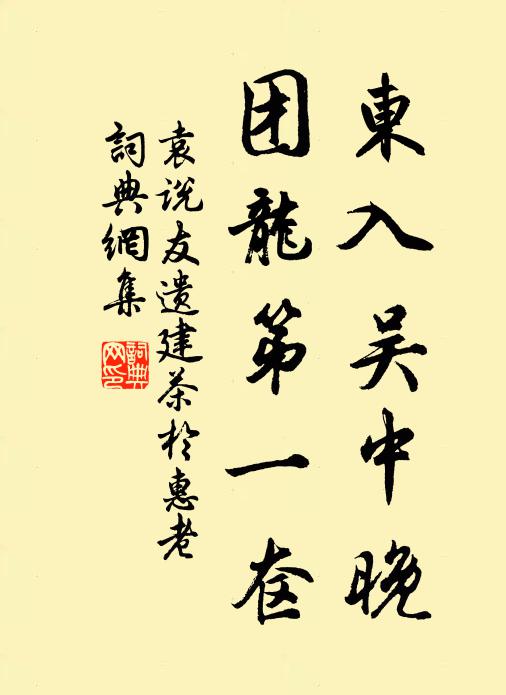 東入吴中晚
团龍第一奁
袁说友遗建茶於惠老
詞典網集
詞典網印